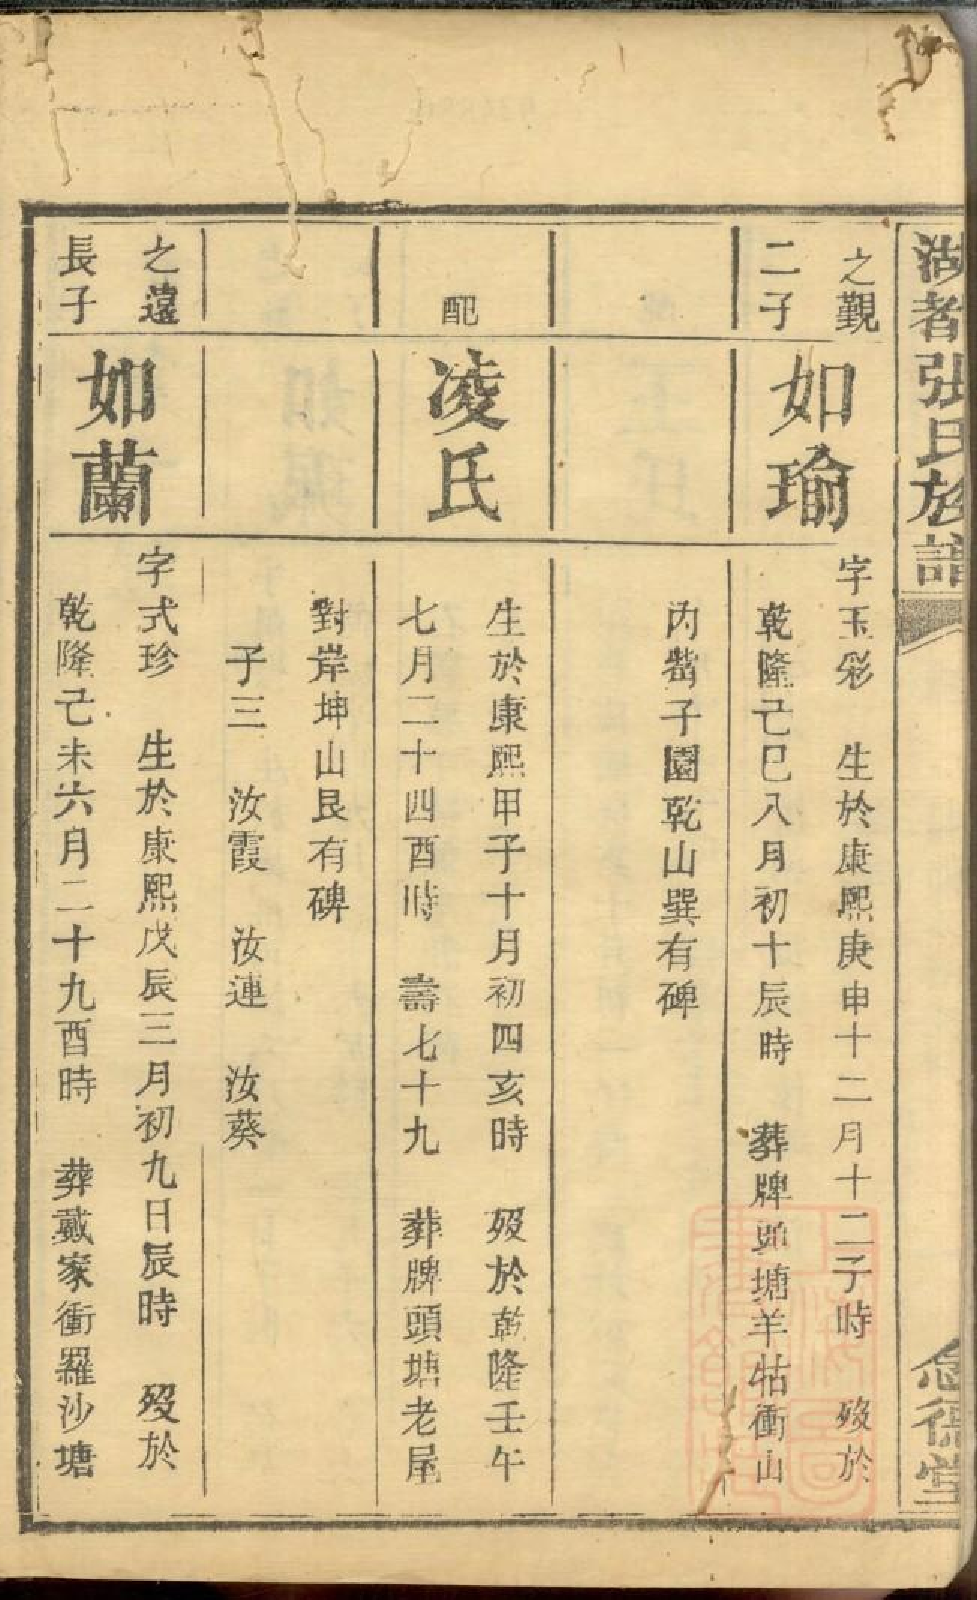 湖者張氏族譜
之覲
二子
如瑜
字玉彩 生於康熙庚申十二月十二子時 歿於
乾隆己巳八月初十辰時 葬牌頭塘羊牯衝山
內崀子園乾山巽有碑
配
凌氏
生於康熙甲子十月初四亥時 歿於乾隆壬午
七月二十四酉時 壽七十九 葬牌頭塘老屋
對岸坤山艮有碑
子三 汝霞 汝連 汝葵
之遠
長子
如蘭
字式珍 生於康熙戊辰三月初九日辰時 歿於
乾隆己未六月二十九酉時 葬戴家衝羅沙塘